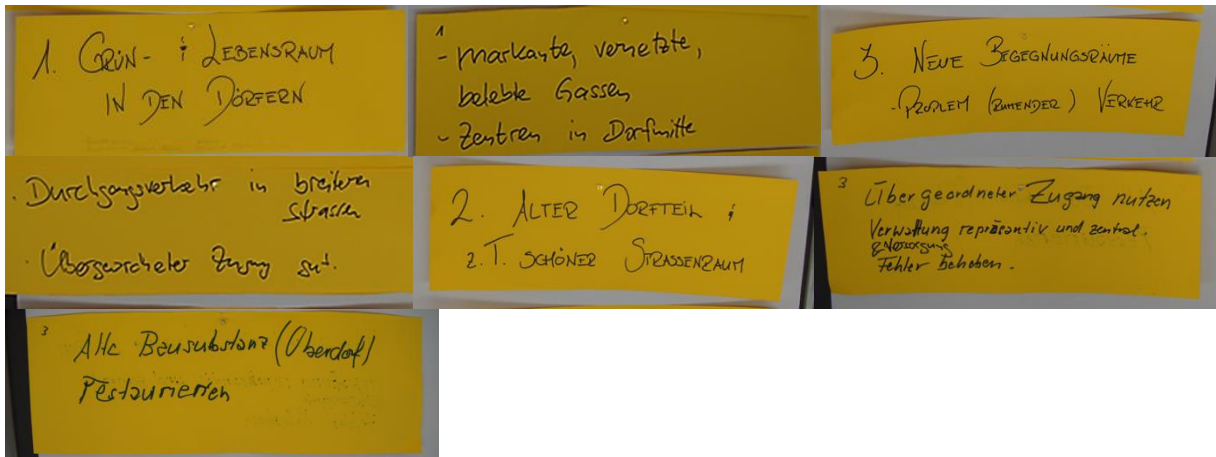 1. GRÜN- & LEBENSRAUM
IN DEN DÖRFERN
1
- markante, vernetzte,
belebte Gassen
- Zentren in Dorfmitte
3. NEUE BEGEGNUNGSRÄUME
- PROBLEM (RUHENDER) VERKEHR
. Durchgangsverkehr in breiteren
Strassen
. Übergeordneter Zugang gut.
2. ALTER DORFTEIL &
z. T. SCHÖNER STRASSENRAUM
3
Übergeordneter Zugang nutzen
Verwaltung repräsentiv und zentral.
& Versorgung
Fehler beheben.
3
Alte Bausubstanz (Oberdorf)
restaurieren